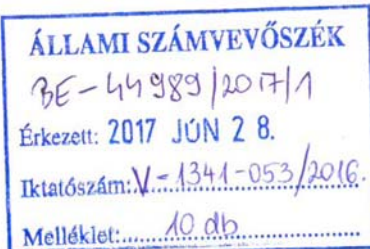 ÁLLAMI SZÁMVEVŐSZÉK
BE-44989/2017/1
Érkezett: 2017 JÚN 28.
Iktatószám: V-1341-053/2016.
Melléklet: 10 db